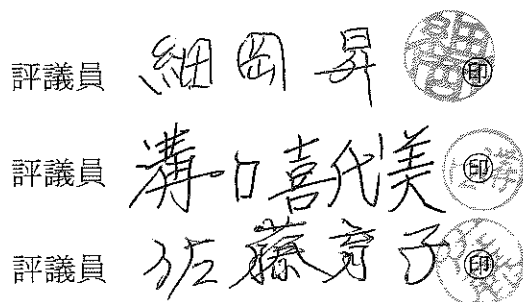 評議員 細岡 昇 ㊞
評議員 溝口喜代美 ㊞
評議員 佐藤育子 ㊞